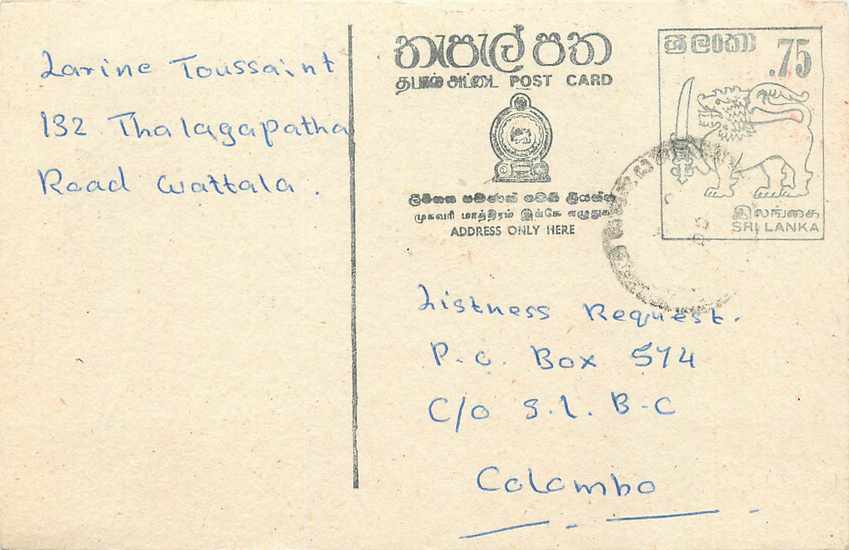 Larine Toussaint
132 Thalagapatha
Road Wattala.
තැපැල් පත
தபால் அட்டை POST CARD
ලිපිනය පමණක් මෙහි ලියන්න
முகவரி மாத்திரம் இங்கே எழுதுக
ADDRESS ONLY HERE
ශ්‍රී ලංකා
.75
இலங்கை
SRI LANKA
Listness Request.
P.O. Box 574
C/o S.L.B.C
Colombo